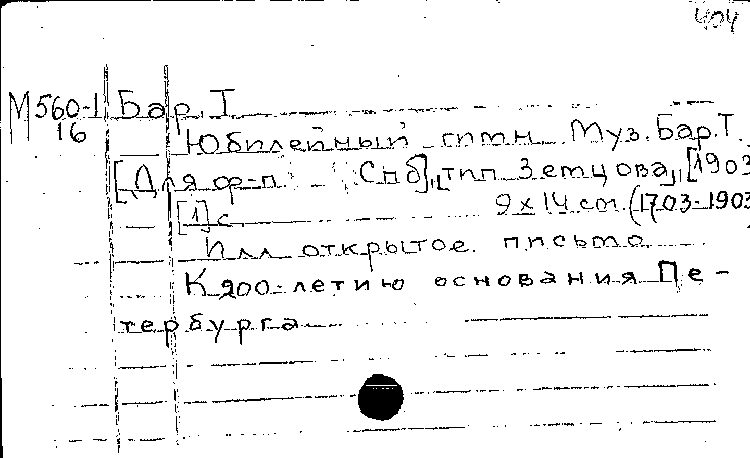 404
М560-1 Бар, Т.
16
Юбилейный гимн. Муз. Бар. Т.
[Для ф-п. Спб], [тип. Зетцова], [1903
[1] с. 9 x 14 см. (1703-1903
Илл. открытое письмо
К 200-летию основания Пе-
тербурга